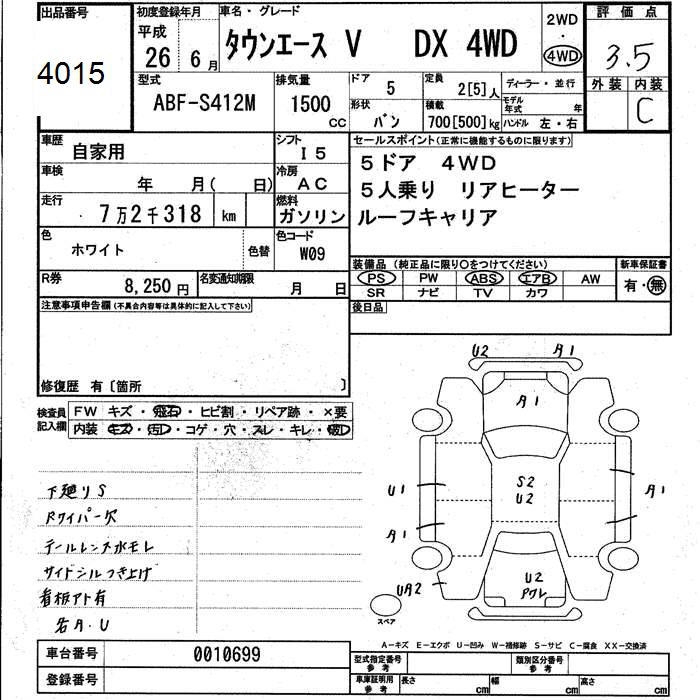 出品番号
4015
初度登録年月
平成
26 6月
車名・グレード
タウンエース V DX 4WD
2WD
・
4WD
評価点
3.5
外装 内装
C
型式
ABF-S412M
排気量
1500
CC
ドア
5
形状
バン
定員
2[5]人
積載
700[500]kg
ディーラー・並行
モデル年式 年
ハンドル 左・右
車歴
自家用
シフト
I5
車検
年 月( 日)
冷房
AC
走行
7万2千318 km
燃料
ガソリン
色
ホワイト
色替
色コード
W09
R券
8,250円
名変通知期限
月 日
セールスポイント(正常に機能するものに限ります)
5ドア 4WD
5人乗り リアヒーター
ルーフキャリア
装備品 (純正品に限り〇をつけてください)
新車保証書
PS PW ABS エアB AW
SR ナビ TV カワ
有・無
後日品
注意事項申告欄(不具合内容等は具体的に記入して下さい)
修復歴 有〔箇所 〕
検査員記入欄
FW キズ・飛石・ヒビ割・リペア跡・×要
内装 キズ・汚レ・コゲ・穴・スレ・キレ・破レ
下廻りS
Rワイパー欠
テールレンズ水モレ
サイドシルつき上げ
看板アト有
各A.U
U2 A1
A1
S2
U2
U1
A1
A1
UA2
U2
スペア
A-キズ E-エクボ U-凹み W-補修跡 S-サビ C-腐食 XX-交換済
車台番号 0010699
登録番号
型式指定番号
参考
類別区分番号
参考
車庫証明用
参考
長さ cm 幅 cm 高さ cm